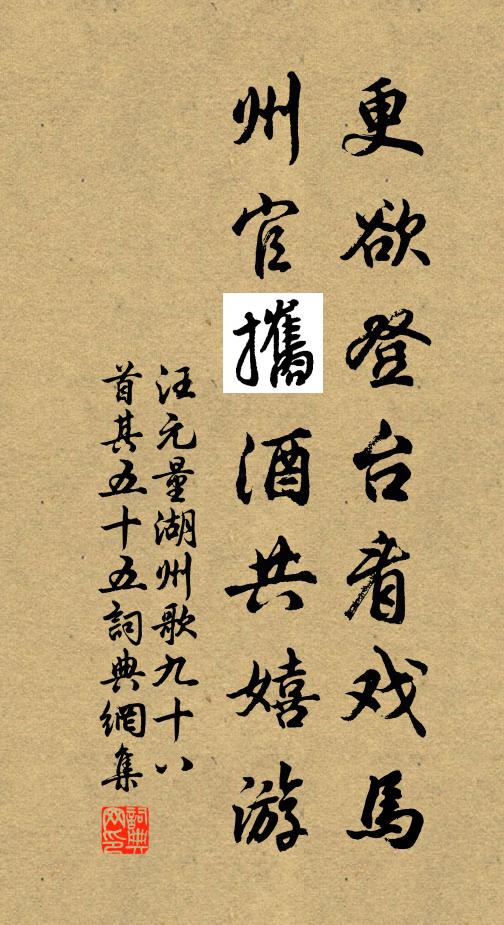 更欲登台看戏馬
州官攜酒共嬉游
汪元量湖州歌九十八
首其五十五詞典網集
詞典网印